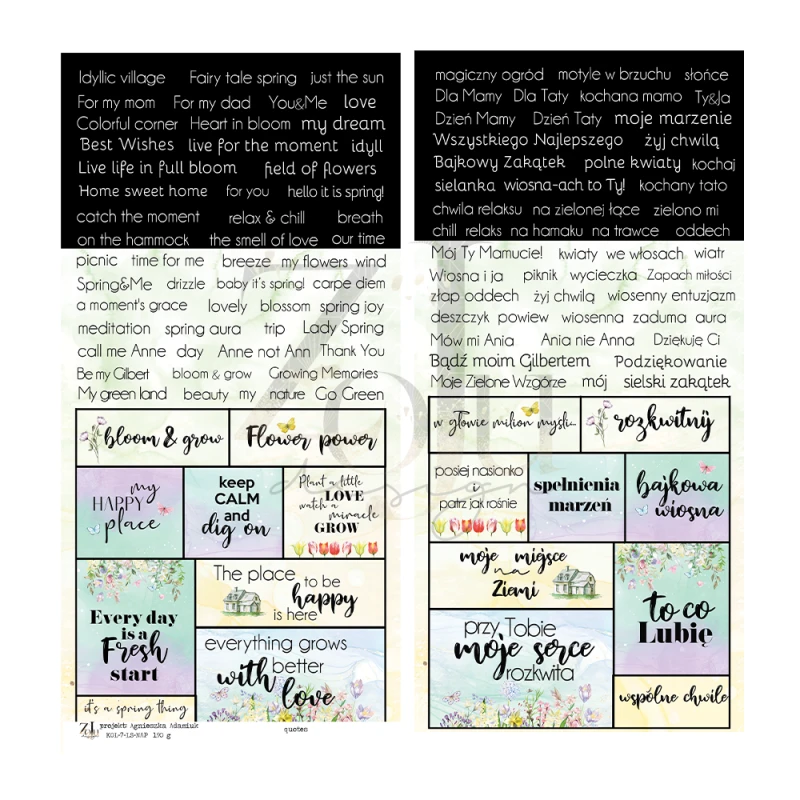 Idyllic village Fairy tale spring just the sun
For my mom For my dad You&Me love
Colorful corner Heart in bloom my dream
Best Wishes live for the moment idyll
Live life in full bloom field of flowers
Home sweet home for you hello it is spring!
catch the moment relax & chill breath
on the hammock the smell of love our time
picnic time for me breeze my flowers wind
Spring&Me drizzle baby it's spring! carpe diem
a moment's grace lovely blossom spring joy
meditation spring aura trip Lady Spring
call me Anne day Anne not Ann Thank You
Be my Gilbert bloom & grow Growing Memories
My green land beauty my nature Go Green
bloom & grow
Flower power
my
HAPPY
place
keep
CALM
and
dig on
Plant a little
LOVE
watch a miracle
GROW
Every day
is a
Fresh
start
The place to be
happy
is here
everything grows
better
with love
it's a spring thing
projekt Agnieszka Adamiuk
KOL-7-LS-NAP 190 g
quotes
magiczny ogród motyle w brzuchu słońce
Dla Mamy Dla Taty kochana mamo Ty&Ja
Dzień Mamy Dzień Taty moje marzenie
Wszystkiego Najlepszego żyj chwilą
Bajkowy Zakątek polne kwiaty kochaj
sielanka wiosna-ach to Ty! kochany tato
chwila relaksu na zielonej łące zielono mi
chill relaks na hamaku na trawce oddech
Mój Ty Mamucie! kwiaty we włosach wiatr
Wiosna i ja piknik wycieczka Zapach miłości
złap oddech żyj chwilą wiosenny entuzjazm
deszczyk powiew wiosenna zaduma aura
Mów mi Ania Ania nie Anna Dziękuję Ci
Bądź moim Gilbertem Podziękowanie
Moje Zielone Wzgórze mój sielski zakątek
w głowie milion myśli...
rozkwitnij
posiej nasionko
i
patrz jak rośnie
spełnienia
marzeń
bajkowa
wiosna
moje miejsce
na
Ziemi
to co
Lubię
przy Tobie
moje serce
rozkwita
wspólne chwile
Zolu
design